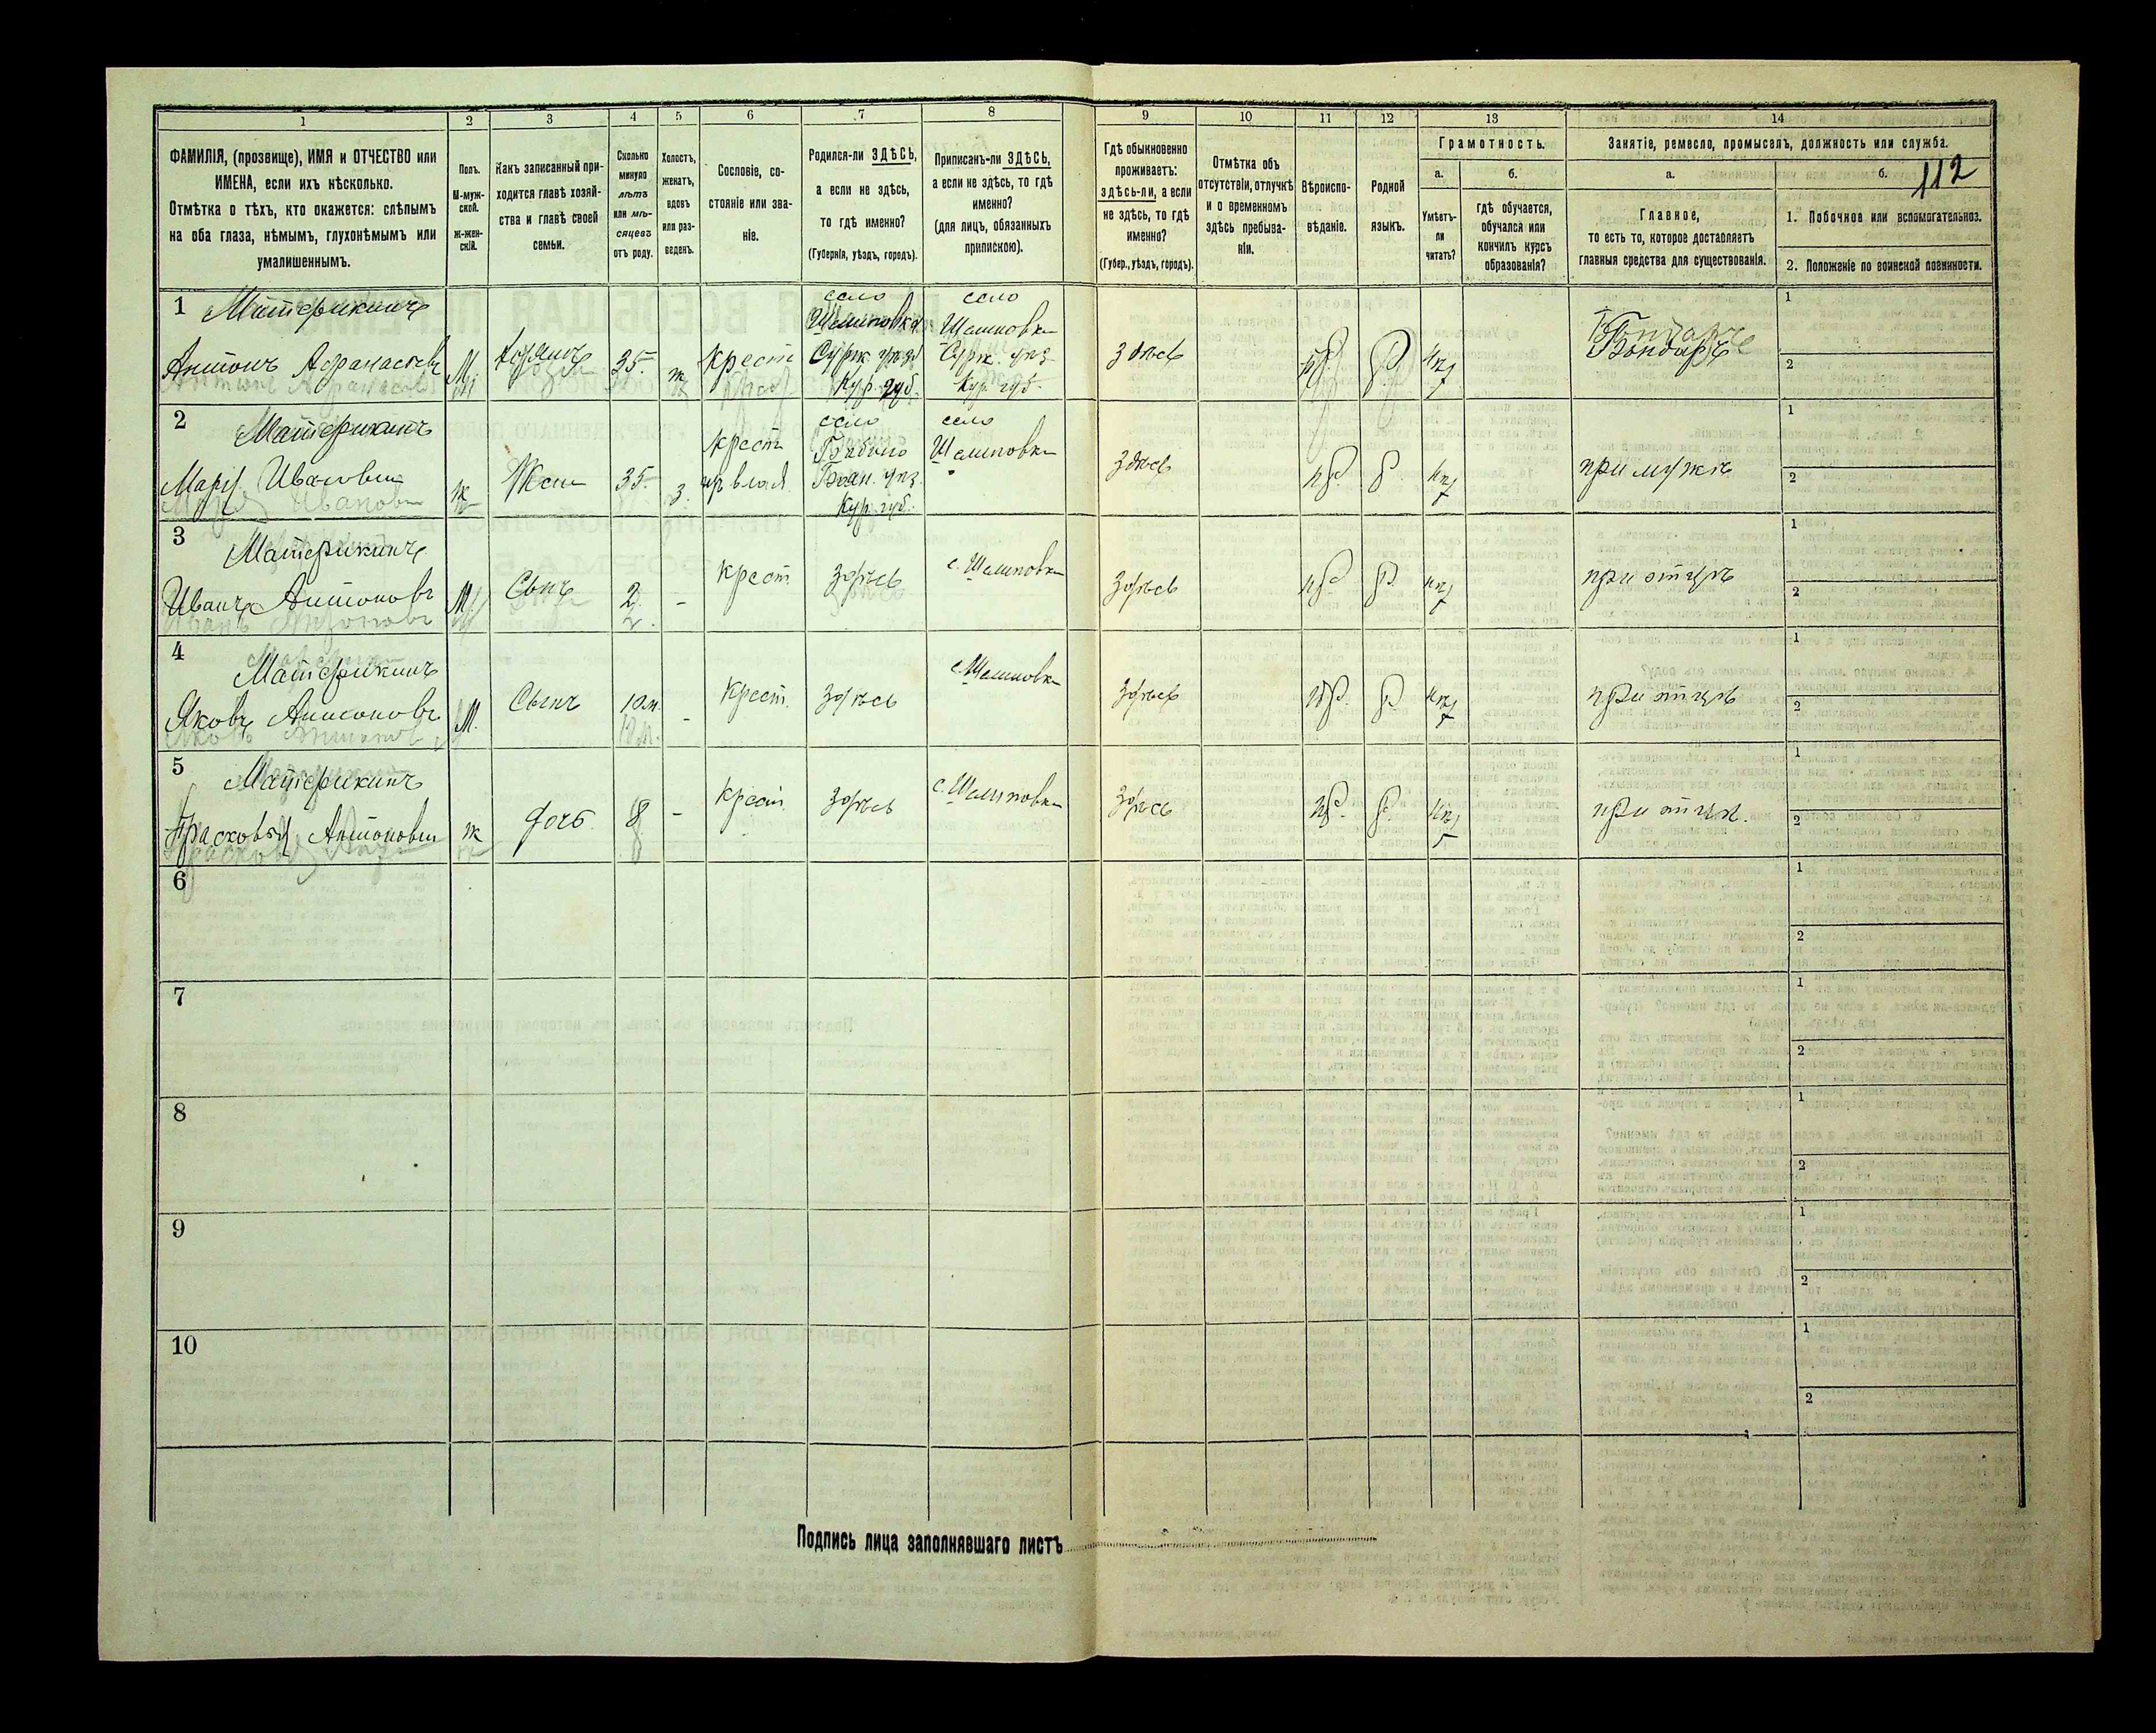 112
1
2
3
4
5
6
7
8
9
10
11
12
13
14
ФАМИЛІЯ, (прозвище), ИМЯ и ОТЧЕСТВО или
ИМЕНА, если ихъ нѣсколько.
Отмѣтка о тѣхъ, кто окажется: слѣпымъ
на оба глаза, нѣмымъ, глухонѣмымъ или
умалишеннымъ.
Полъ.
М-муж-
ской.
ж-жен-
скій.
Какъ записанный при-
ходится главѣ хозяй-
ства и главѣ своей
семьи.
Сколько
минуло
лѣтъ
или мѣ-
сяцевъ
отъ роду.
Холостъ,
женатъ,
вдовъ
или раз-
веденъ.
Сословіе, со-
стояніе или зва-
ніе.
Родился-ли ЗДѢСЬ,
а если не здѣсь,
то гдѣ именно?
(Губернія, уѣздъ, городъ).
Приписанъ-ли ЗДѢСЬ,
а если не здѣсь, то гдѣ
именно?
(для лицъ, обязанныхъ
припискою).
Гдѣ обыкновенно
проживаетъ:
здѣсь-ли, а если
не здѣсь, то гдѣ
именно?
(Губер., уѣздъ, городъ).
Отмѣтка объ
отсутствіи, отлучкѣ
и о временномъ
здѣсь пребыва-
ніи.
Вѣроиспо-
вѣданіе.
Родной
языкъ.
Грамотность.
а.
Умѣетъ-
ли
читать?
б.
гдѣ обучается,
обучался или
кончилъ курсъ
образованія?
Занятіе, ремесло, промыселъ, должность или служба.
а.
Главное,
то есть то, которое доставляетъ
главныя средства для существованія.
б.
1. Побочное или вспомогательноз.
2. Положеніе по воинской повинности.
1 Материкинъ
Антонъ Афанасьевъ
М.
Хозяинъ
35.
ж
Крест
село
Шелиповка
Сурж. уѣз.
Кур. губ.
село
Шелиповка
Сурж. уѣз.
Кур. губ.
Здѣсь
пр.
р.
нѣт
Бондарь
1
2
2 Материкинъ
Марія Иванова
ж
Жена
35.
з.
крест
село
Бобино
Кур. губ.
село
Шелиповка
Здѣсь
пр.
р.
нѣт
при мужѣ
1
2
3 Материкинъ
Иванъ Антоновъ
М.
Сынъ
2.
-
крест
здѣсь
с. Шелиповка
здѣсь
пр.
р.
нѣт
при отцѣ
1
2
4 Материкинъ
Яковъ Антоновъ
М.
Сынъ
10м.
-
крест.
здѣсь
с. Шелиповка
здѣсь
пр.
р.
нѣт
при отцѣ
1
2
5 Материкинъ
Прасковья Антонова
ж
дочь
8
-
крест.
здѣсь
с. Шелиповка
здѣсь
пр.
р.
нѣт
при отцѣ.
1
2
6
1
2
7
1
2
8
1
2
9
1
2
10
1
2
Подпись лица заполнявшаго листъ